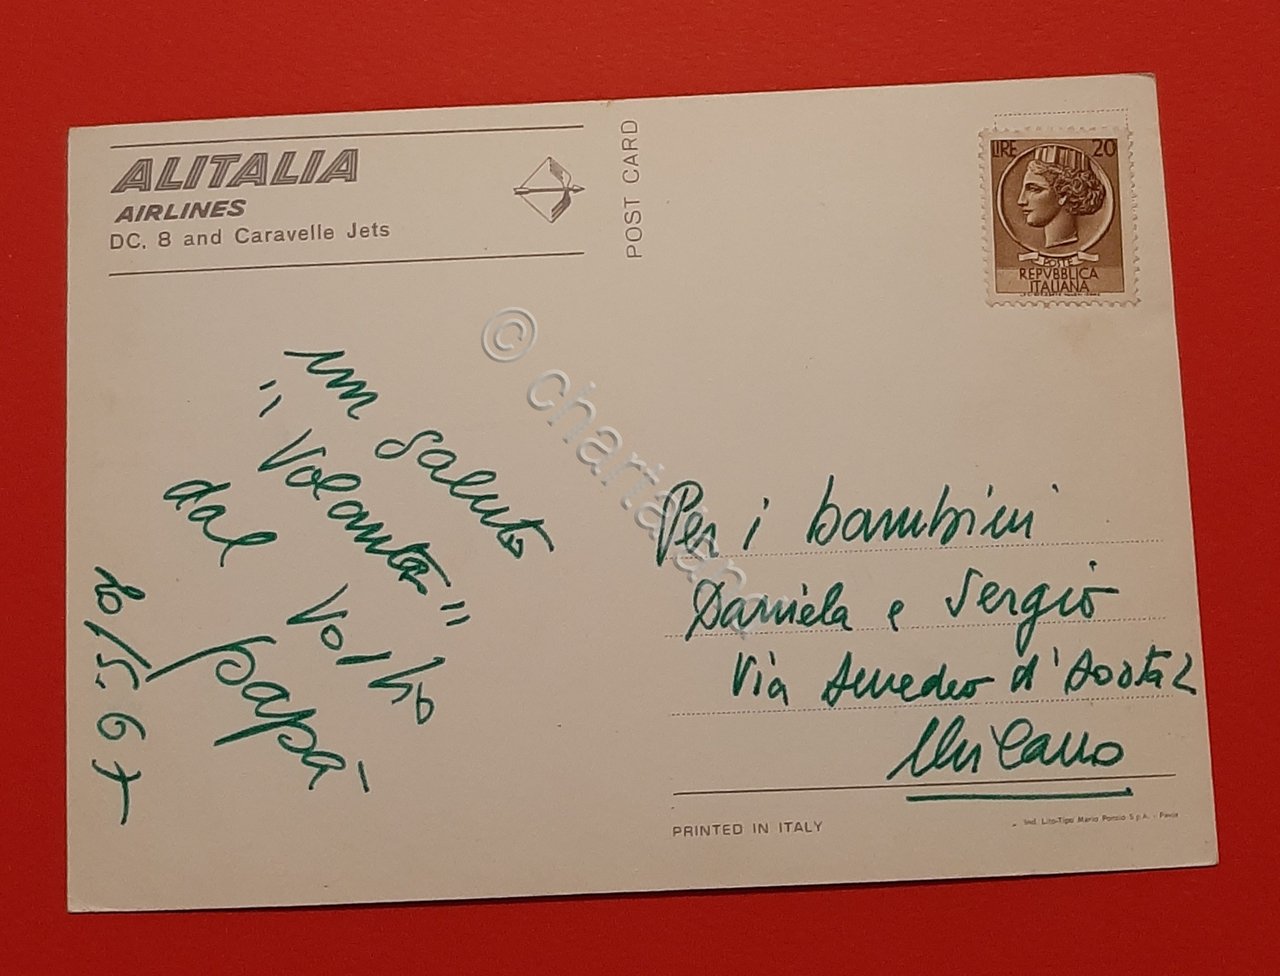 ALITALIA
AIRLINES
DC. 8 and Caravelle Jets
POST CARD
LIRE 20
POSTE
REPVBBLICA
ITALIANA
un saluto
"Volante"
dal Vostro
papà
Per i bambini
Daniela e Sergio
Via Amedeo d'Aosta 2
Milano
PRINTED IN ITALY
Ind. Lito-Tipo Mario Ponzio S.p.A. - Pavia
© chartaland